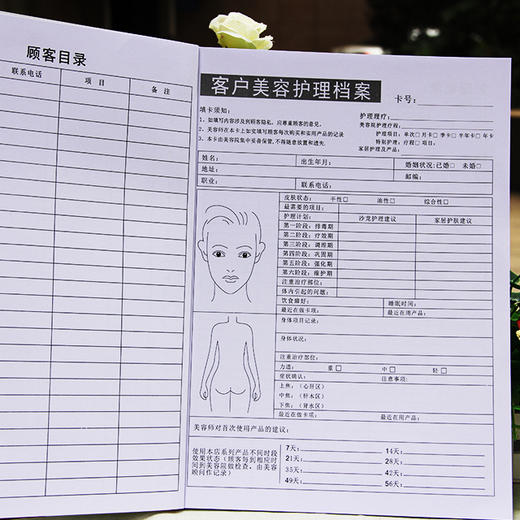 顾客目录
联系电话 项目 备注
客户美容护理档案
卡号:
填卡须知:
1、如填写内容涉及到顾客隐私，应尊重顾客的意见。
2、美容师在本卡上如实填写顾客每次购买和实用产品的记录
3、本卡由美容院集中妥善保管,不得随意放置和遗失.
护理理疗:
美容院护理疗程:
护理项目: 单次□ 月卡□ 季卡□ 半年卡□ 年卡
特别护理: 疗程□ 项目:
家居护理及产品:
姓名: 出生年月: 婚姻状况:已婚□ 未婚□
地址: 邮编:
职业: 联系电话:
皮肤状态: 干性□ 油性□ 综合性□
最需要的项目:
护理计划: 沙龙护理建议 家居护肤建议
第一阶段: 排毒期
第二阶段: 疗效期
第三阶段: 调理期
第四阶段: 巩固期
第五阶段: 强化期
第六阶段: 维护期
注重治疗部位:
体内引起的问题:
饮食癖好: 睡眠时间:
最近在做卡项: 最近在用产品:
身体项目记录:
身体状况:
注重治疗部位:
力道: 重□ 中□ 轻□
症状确认: 注意事项:
上焦: (心肝区)
中焦: (肝水区)
下焦: (肾水区)
最近在做卡项: 最近在用产品:
美容师对首次使用产品的建议:
使用本店系列产品不同时段
效果状态(顾客每到相应时
间到美容院做检查，由美容
顾问作记录)
7天: 14天:
21天: 28天:
35天: 42天:
49天: 56天: